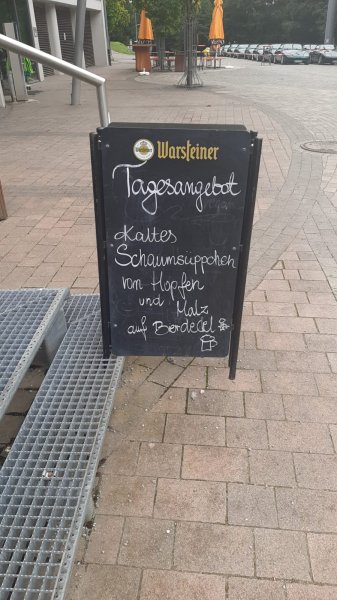 Warsteiner
Tagesangebot
Kaltes
Schaumsüppchen
von Hopfen
und Malz
auf Bierdeckel